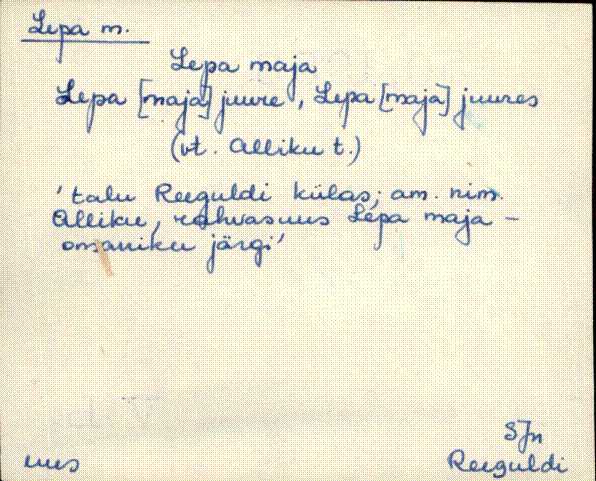 Lepa m.
Lepa maja
Lepa [maja] juure, Lepa [maja] juures
(vt. Alliku t.)
'talu Reeguldi külas; am. nim.
Alliku, rahvasuus Lepa maja –
omaniku järgi'
SJn
uus
Reeguldi